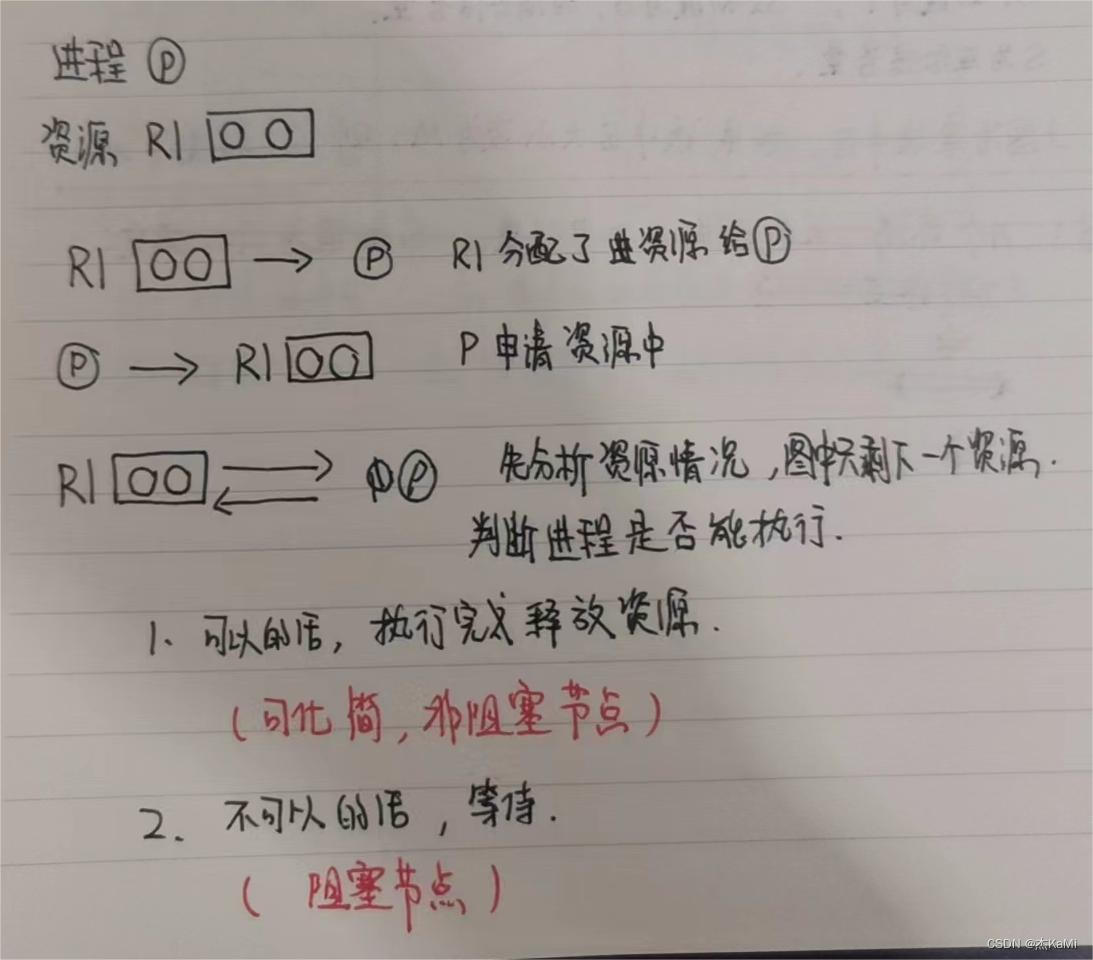 进程 P
资源 R1
R1 → P R1 分配了进资源给P
P → R1 P 申请资源中
R1 P 先分析资源情况,图中只剩下一个资源.
判断进程是否能执行.
1. 可以的话, 执行完成释放资源.
(可化简, 非阻塞节点)
2. 不可以的话, 等待.
( 阻塞节点 )
CSDN @杰KaMi